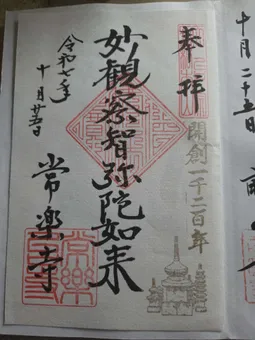 十月二十五日
奉拝
開創一千二百年
妙観察智弥陀如来
令和七年
十月廿五日
常楽寺
常樂